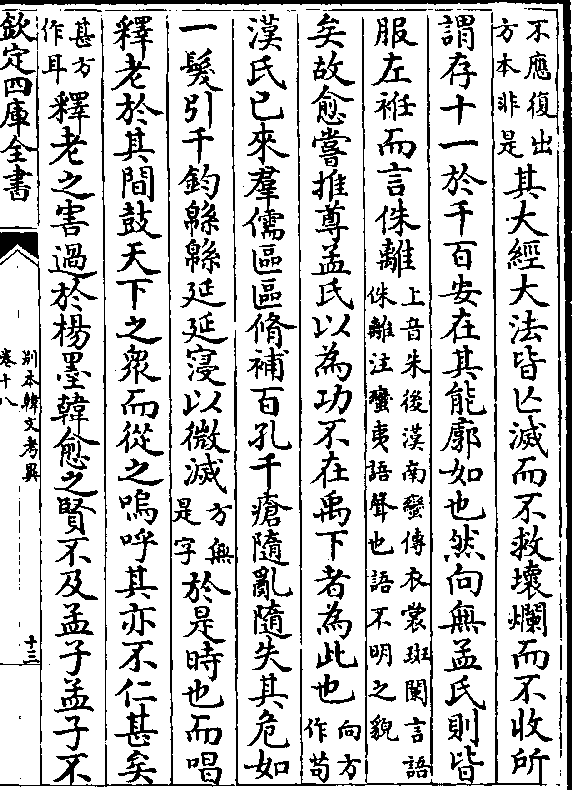 不應復出
方本非是其大經大法皆亡滅而不救壞爛而不收所
謂存十一於千百安在其能廓如也然向無孟氏則皆
服左袵而言侏離上音朱後漢南蠻傳衣裳斑闌言語
侏離注蠻夷語聲也語不明之貌
矣故愈嘗推尊孟氏以為功不在禹下者為此也向方
作苟
漢氏已來羣儒區區脩補百孔千瘡隨亂隨失其危如
一髮引千鈞緜緜延延寖以微滅方無
是字於是時也而唱
釋老於其間鼓天下之衆而從之嗚呼其亦不仁甚矣
甚方
作耳釋老之害過於楊墨韓愈之賢不及孟子孟子不
欽定四庫全書
別本韓文考異
卷十八
十三